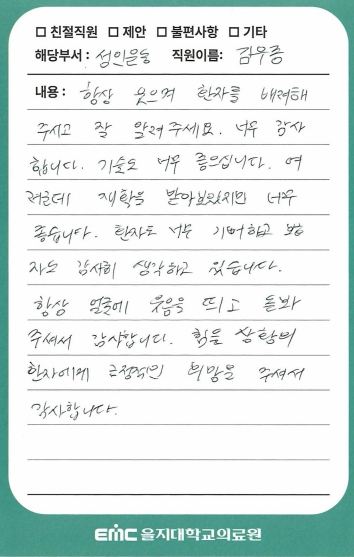 □ 친절직원 □ 제안 □ 불편사항 □ 기타
해당부서 : 성인운동 직원이름: 김우종
내용 : 항상 웃으며 환자를 배려해
주시고 잘 알려주세요. 너무 감사
합니다. 기술도 너무 좋으십니다. 여
러군데 재활을 받아보았지만 너무
좋습니다. 환자도 너무 기뻐하고 보호
자도 감사히 생각하고 있습니다.
항상 얼굴에 웃음을 띄고 돌봐
주셔서 감사합니다. 힘든 상황의
환자에게 긍정적인 희망을 주셔서
감사합니다.
EMC 을지대학교의료원